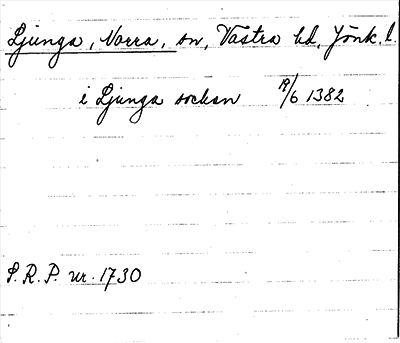 Ljunga, Norra, sn, Västra hd, Jönk. l.
i Ljunga sockan 19/6 1382
S.R.P. nr. 1730